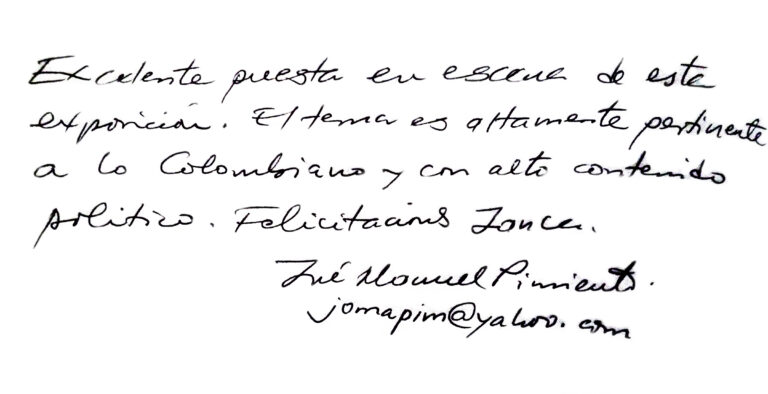 Excelente puesta en escena de este
exposición. El tema es altamente pertinente
a lo Colombiano y con alto contenido
político. Felicitacions
José Manuel Pimiento.
jomapim@yahoo.com